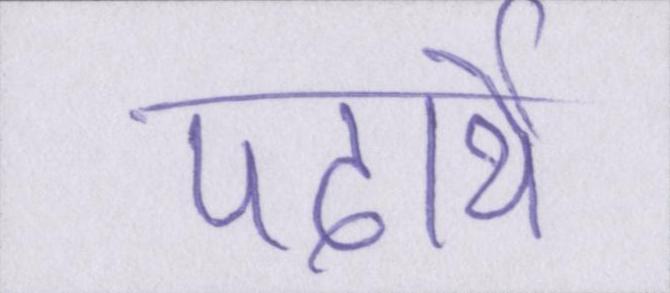 पदार्थे